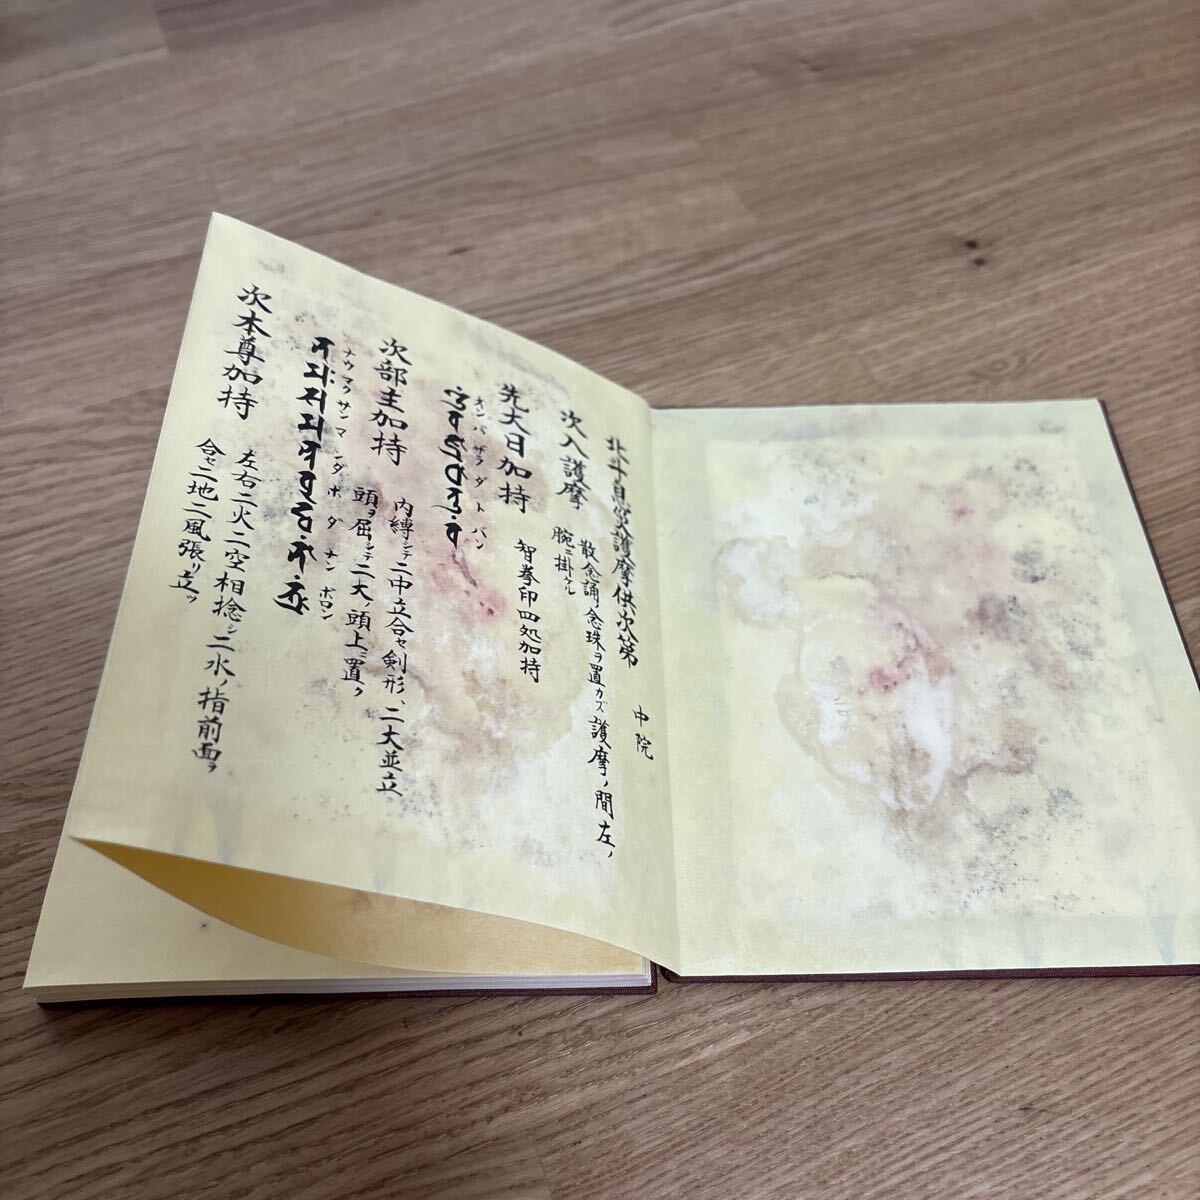 北斗息災護摩供次第　中院
次入護摩　散念誦ノ念珠ヲ置カズ護摩ノ間左ノ
腕ニ掛クル
先大日加持　智拳印四処加持
オンバザラダトバン
次部主加持　内縛シテ二中立合セ剣形、二大並立
頭ヲ屈シテ二大ノ頭上ニ置ク
ナウマクサンマンダボダナンボロン
次本尊加持　左右二火二空相捻シ二水ノ指前面ヲ
合セ二地二風張リ立ツ